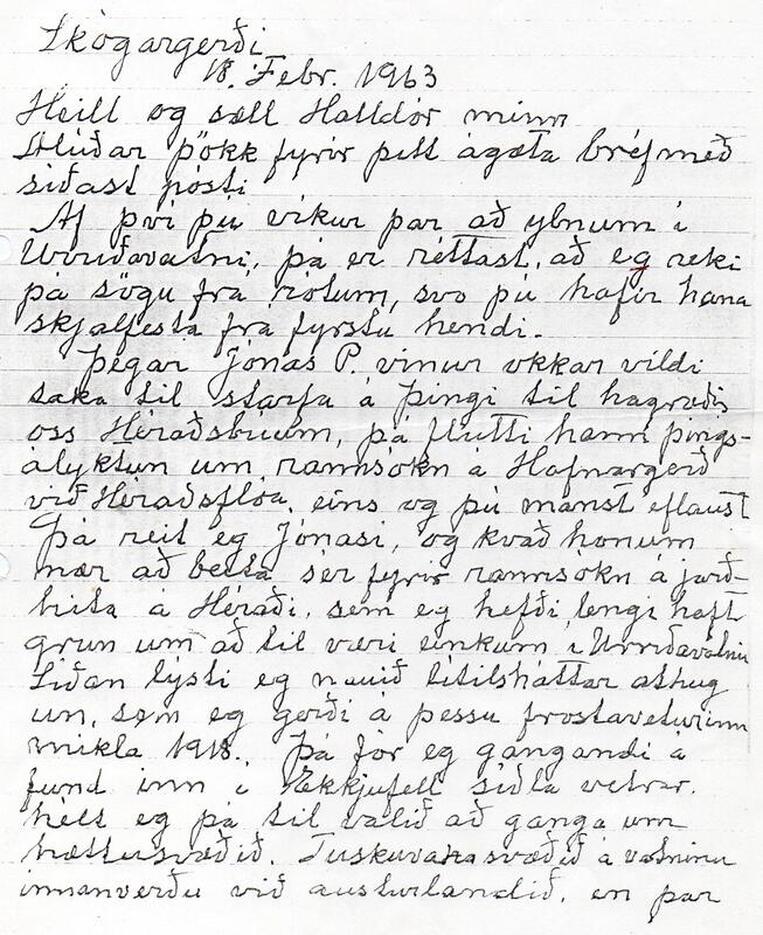 Skógargerði
18. Febr. 1963
Heill og sæll Halldór minn
Alúðar þökk fyrir þitt ágæta bréf með
síðast pósti
Af því þú víkur þar að ylnum í
Urriðavatni, þá er réttast, að eg reki
þá sögu frá rótum, svo þú hafir hana
skjalfesta frá fyrstu hendi.
Þegar Jónas P. vinur okkar vildi
taka til starfa á þingi til hagræðis
oss Héraðsbúum, þá flutti hann þings-
ályktun um rannsókn á Hafnargerð
við Héraðsflóa, eins og þú manst eflaust
Þá reit eg Jónasi, og kvað honum
nær að beita sér fyrir rannsókn á jarð-
hita á Héraði, sem eg hefði lengi haft
grun um að til væri einkum í Urriðavatni
Síðan lýsti eg lítilsháttar athug
un, sem eg gerði á þessu frostaveturinn
mikla 1918. Þá fór eg gangandi á
fund inn í Ekkjufell síðla vetrar.
hélt eg þá til valið að ganga um
hættusvæðið. Tuskuvakasvæðið á vatninu
innanverðu við austurlandið, en þar